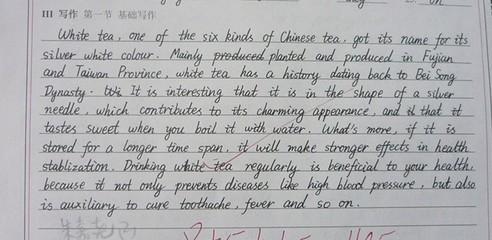 III 写作 第一节 基础写作
White tea, one of the six kinds of Chinese tea, got its name for its
silver white colour. Mainly produced planted and produced in Fujian
and Taiwan Province, white tea has a history dating back to Bei Song
Dynasty. It is interesting that it is in the shape of a silver
needle, which contributes to its charming appearance, and that it
tastes sweet when you boil it with water. What's more, if it is
stored for a longer time span, it will make stronger effects in health
stablization. Drinking white tea regularly is beneficial to your health,
because it not only prevents diseases like high blood pressure, but also
is auxiliary to cure toothache, fever and so on.